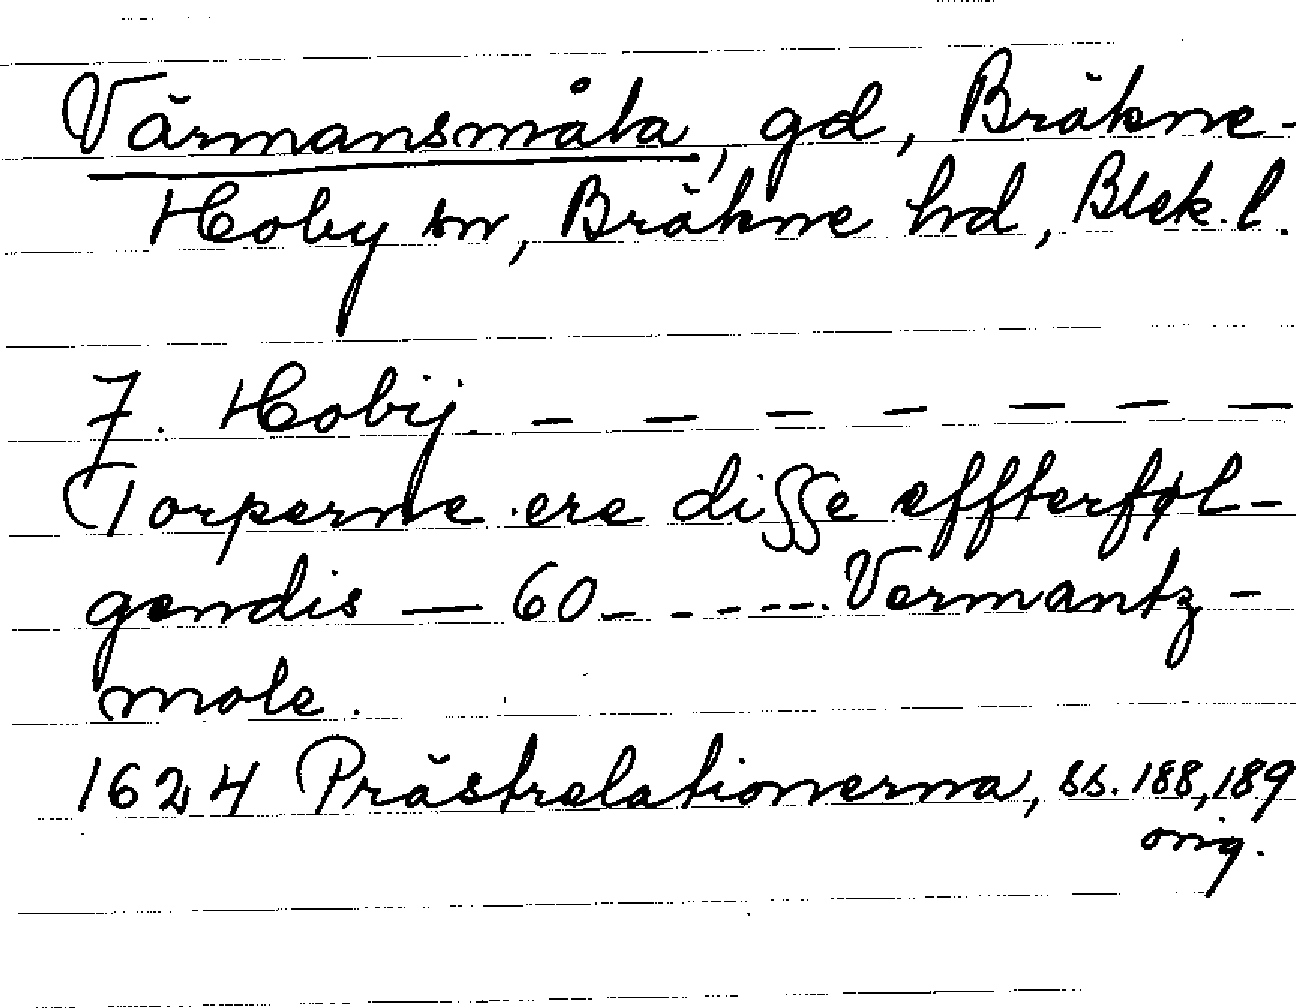 Värmansmåla, gd, Bräkne-
Hoby sn, Bräkne hd, Blek. l.
7. Hobij. — — — — — — —
Torperne ere disse effterføl-
gendis — 60 - - - - - - Vermantz-
mole.
1624 Prästrelationerna, ss. 188, 189
orig.